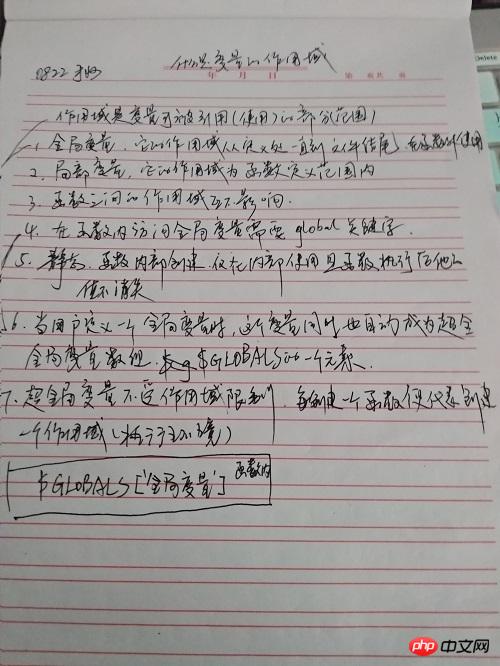 0822 什么是变量的作用域
年 月 日 第 页 共 页
作用域是变量可被引用(使用)的部分范围)
1. 全局变量,它的作用域从定义处一直到文件结尾,在函数外使用
2. 局部变量,它的作用域为函数定义范围内
3. 函数之间的作用域互不影响.
4. 在函数内访问全局变量需要 global 关键字.
5. 静态.函数内部创建.仅在内部使用且函数执行后他的
值不消失
6. 当用户定义一个全局变量时,这个变量同时也自动成为超全
全局变量数组. $GLOBALS的一个元素.
7. 超全局变量不受作用域限制. 每创建一个函数便代表创建
一个作用域(执行环境)
$GLOBALS['全局变量'] 函数内
Delete
php 中文网